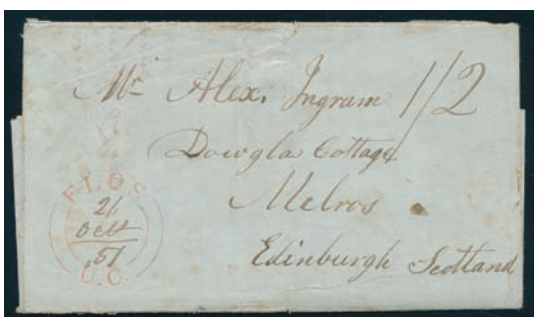 Mr Alex. Ingram 1/2
Dowgla Cottage
Melros
Edinburgh Scotland
FLOS
21
Oct
51
U.C.